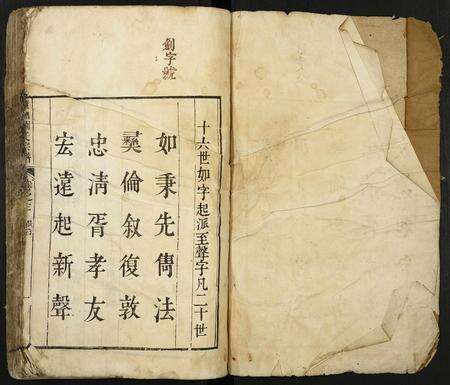 字號
十六世如字起派至聲字凡二十世
如秉先儁法
彝倫叙復敦
忠清胥孝友
宏遠起新聲